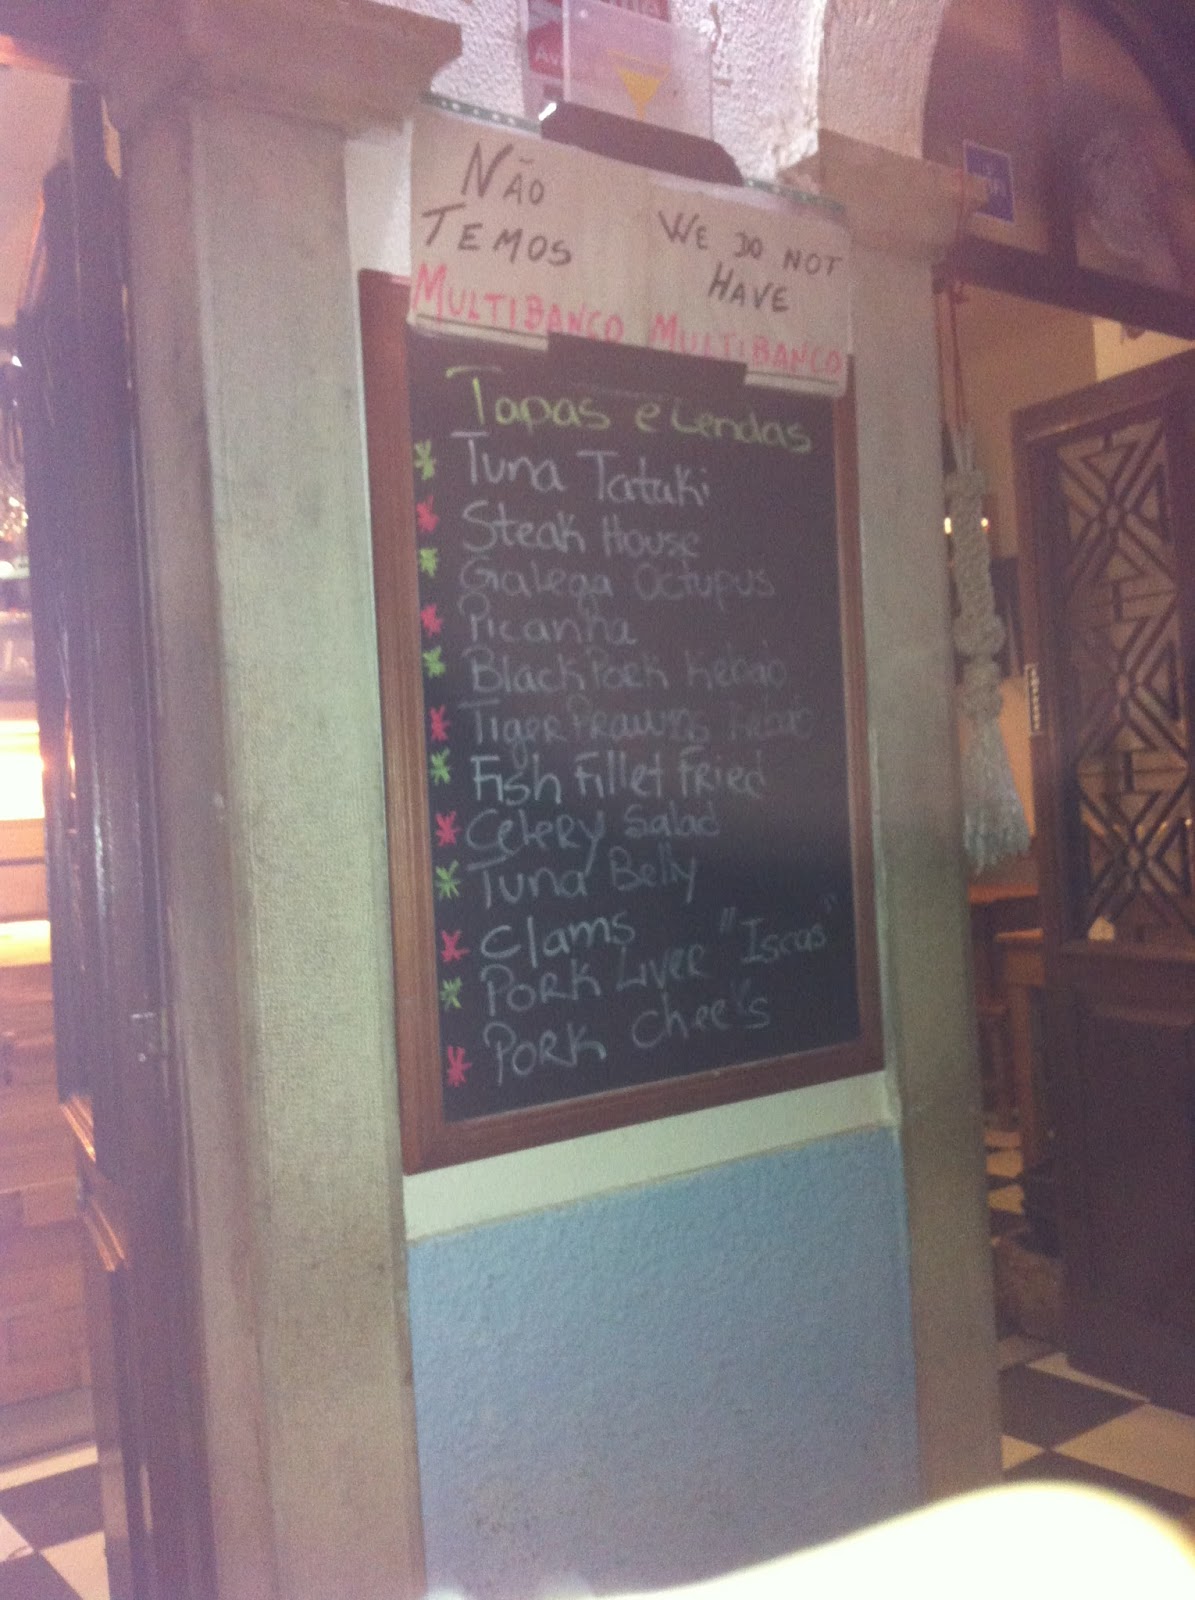 NÃO
TEMOS
MULTIBANCO
WE DO NOT
HAVE
MULTIBANCO
Tapas e Lendas
Tuna Tataki
Steak House
Galega Octupus
Picanha
Black Pork Kebab
Tiger Prawns Kebab
Fish Fillet Fried
Celery Salad
Tuna Belly
Clams
Pork Liver "Iscas"
Pork Cheeks